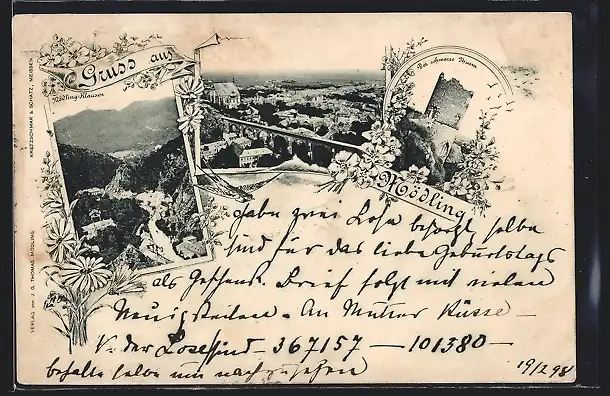 Gruss aus
Mödling-Klausen
Der schwarze Thurm
Mödling
KRETZSCHMAR & SCHATZ, MEISSEN.
VERLAG von J. G. THOMAS, MÖDLING.
habe zwei Lose besorgt, selbe
sind für das liebe Geburtstags
als Geschenk. Brief folgt mit vielen
Neuigkeiten. An Mutter Küsse –
N. der Lose sind – 367157 — 101380 –
behalte selbe um nachzusehen
19/2 98